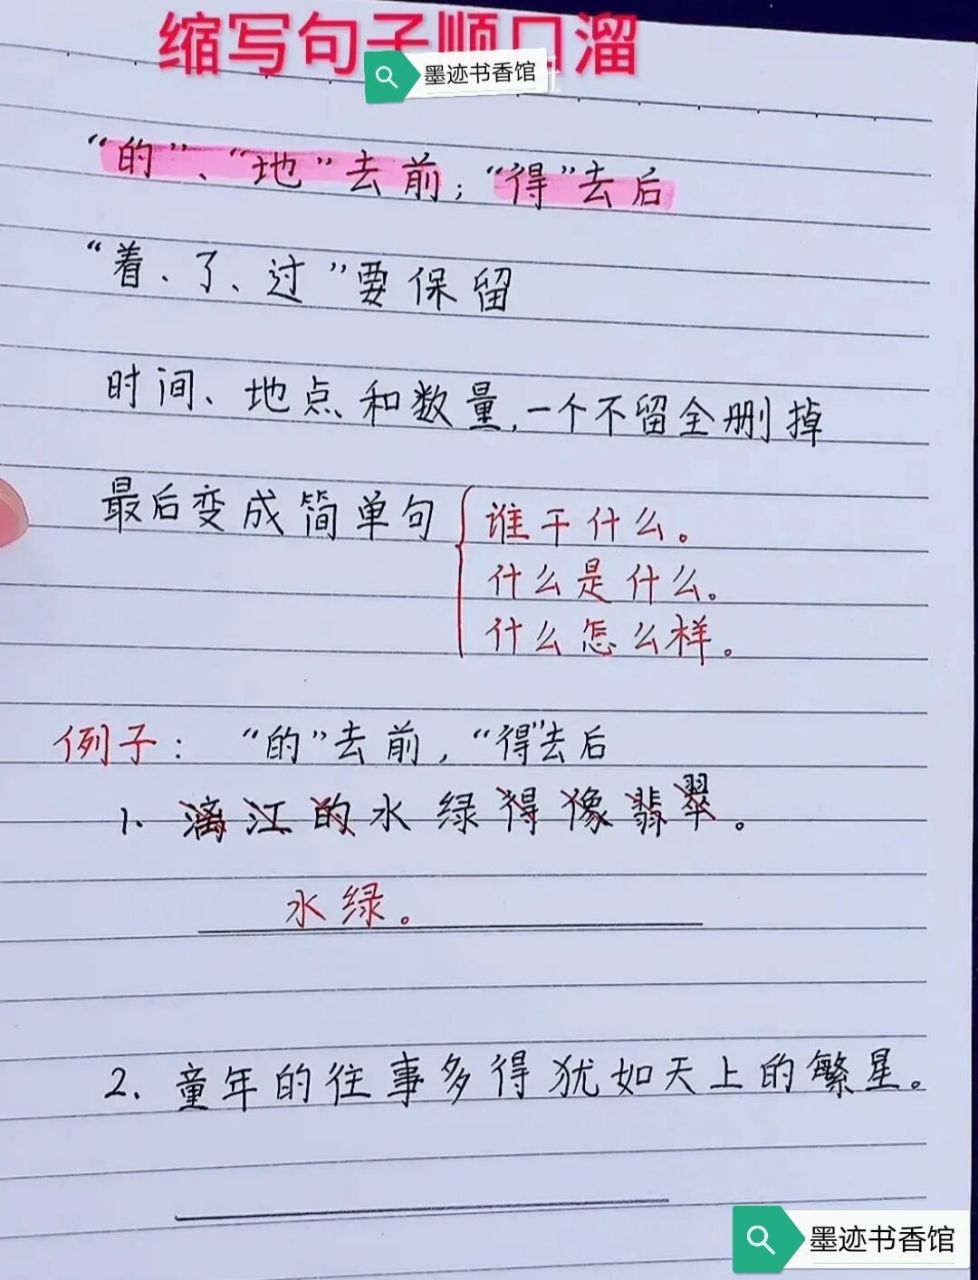 缩写句子顺口溜
墨迹书香馆
“的”、“地”去前；“得”去后
“着、了、过”要保留
时间、地点和数量，一个不留全删掉
最后变成简单句
谁干什么。
什么是什么。
什么怎么样。
例子：“的”去前，“得”去后
1、漓江的水绿得像翡翠。
水绿。
2、童年的往事多得犹如天上的繁星。
墨迹书香馆